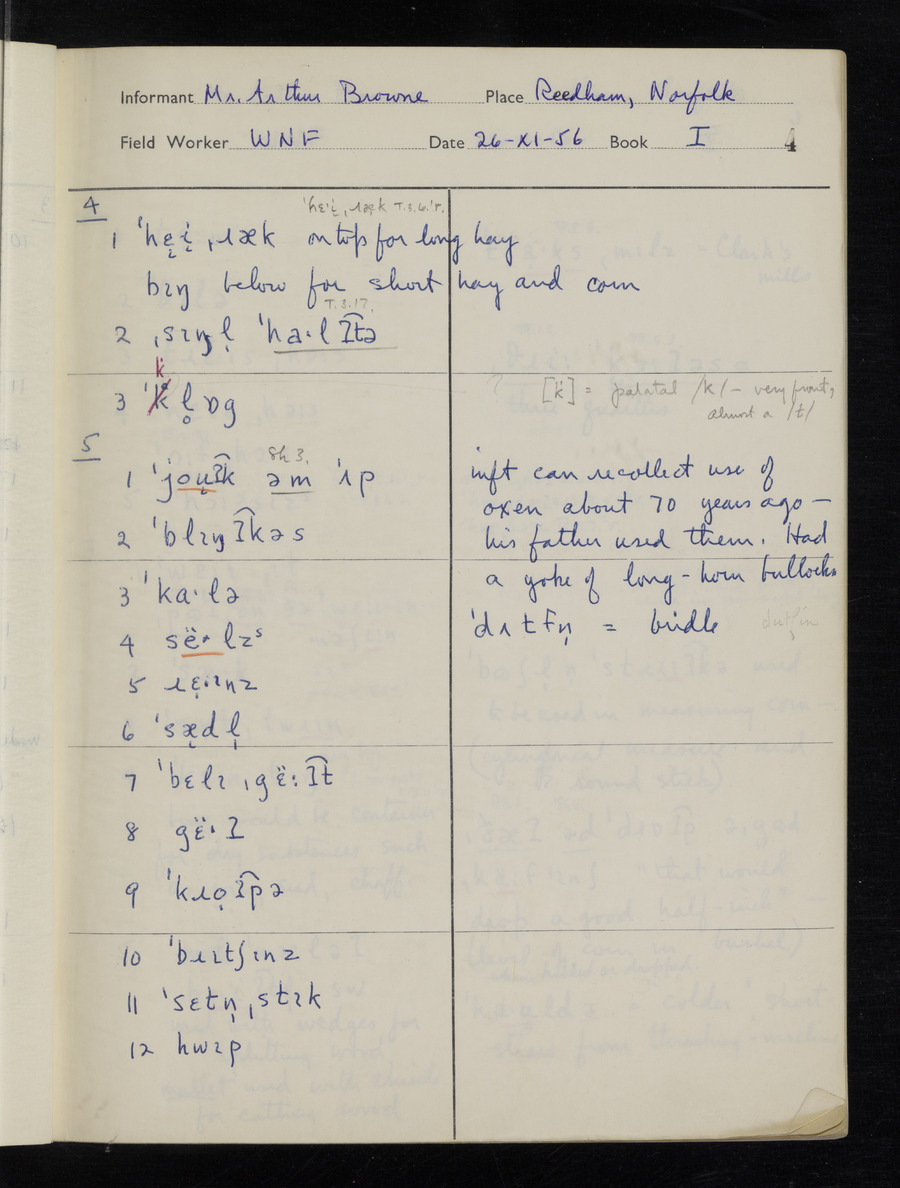 Informant Mr. Arthur Browne Place Reedham, Norfolk
Field Worker WNF Date 26-XI-56 Book I 4
4
'hɛ·i̩ ˌɹæk T.S.6.'r.
1 'hɛ̣i̩ ˌɹæk on top for long hay
bɪŋ below for short hay and corn
T.S.17.
2 ˌsɪŋl̩ 'ha·lʔt͡ə
k̈
3 'k l̥ɒg
[k̈] = palatal /k/ – very front, almost a /t/
5
Sh 3.
1 'jouʔ͡k əm 'ɪp
2 'blɪŋʔ͡kəs
3 'ka·lə
4 së·lzˢ
5 ɹɛ̣·ɪnz
6 'sædl̩
7 'bɛlɪ ˌgɛ̈:ʔ͡t
8 gɛ̈·ʔ
9 'kɹo̜ʔ͡pə
10 'bɹɪtʃɪnz
11 'sɛtn̩ ˌstɪk
12 hwɪp
inft can recollect use of
oxen about 70 years ago –
his father used them. Had
a yoke of long-horn bullocks
'dʌtfn̩ = bridle